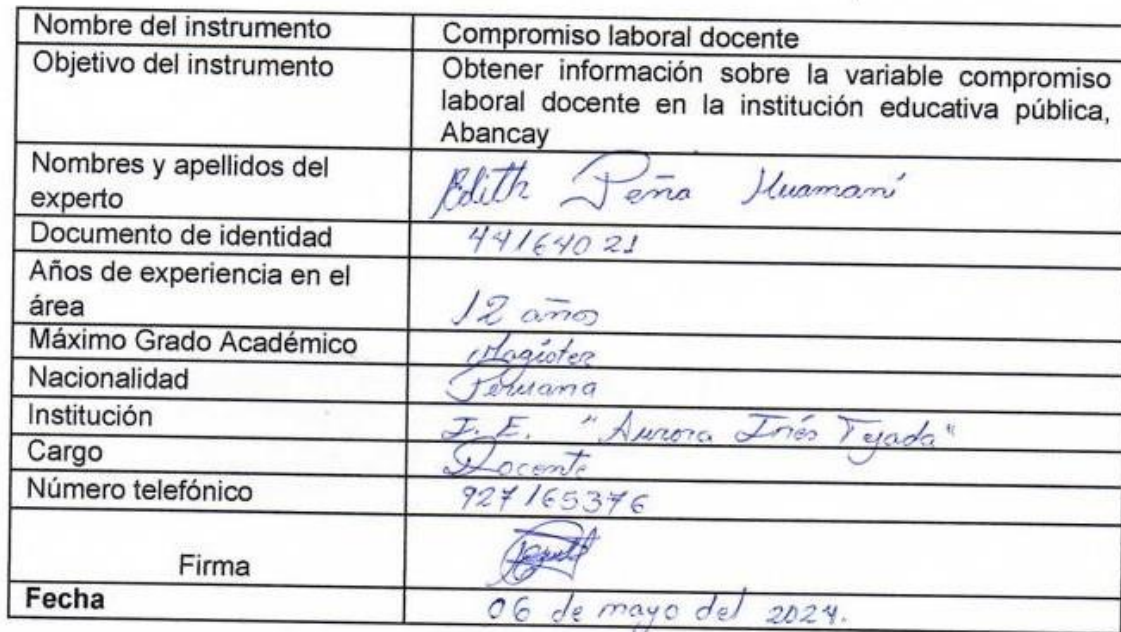 Nombre del instrumento Compromiso laboral docente
Objetivo del instrumento Obtener información sobre la variable compromiso
laboral docente en la institución educativa pública,
Abancay
Nombres y apellidos del
experto Edith Peña Huamaní
Documento de identidad 44164021
Años de experiencia en el
área 12 años
Máximo Grado Académico Magister
Nacionalidad Peruana
Institución I. E. "Aurora Inés Tejada"
Cargo Docente
Número telefónico 927165376
Firma
Fecha 06 de mayo del 2024.